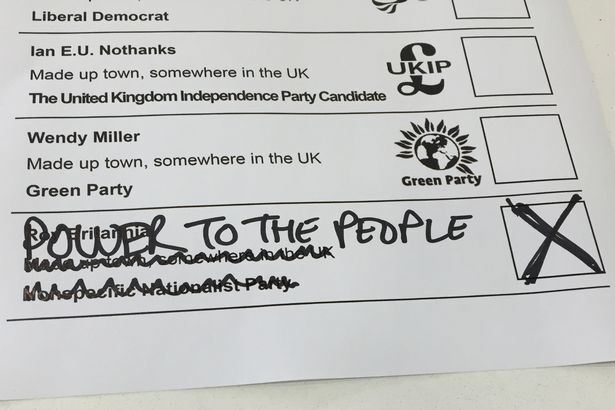 Liberal Democrat
Ian E.U. Nothanks
Made up town, somewhere in the UK
The United Kingdom Independence Party Candidate
UKIP
Wendy Miller
Made up town, somewhere in the UK
Green Party
Green Party
POWER TO THE PEOPLE
Britannia
Made up town, somewhere in the UK
Nationalist Party